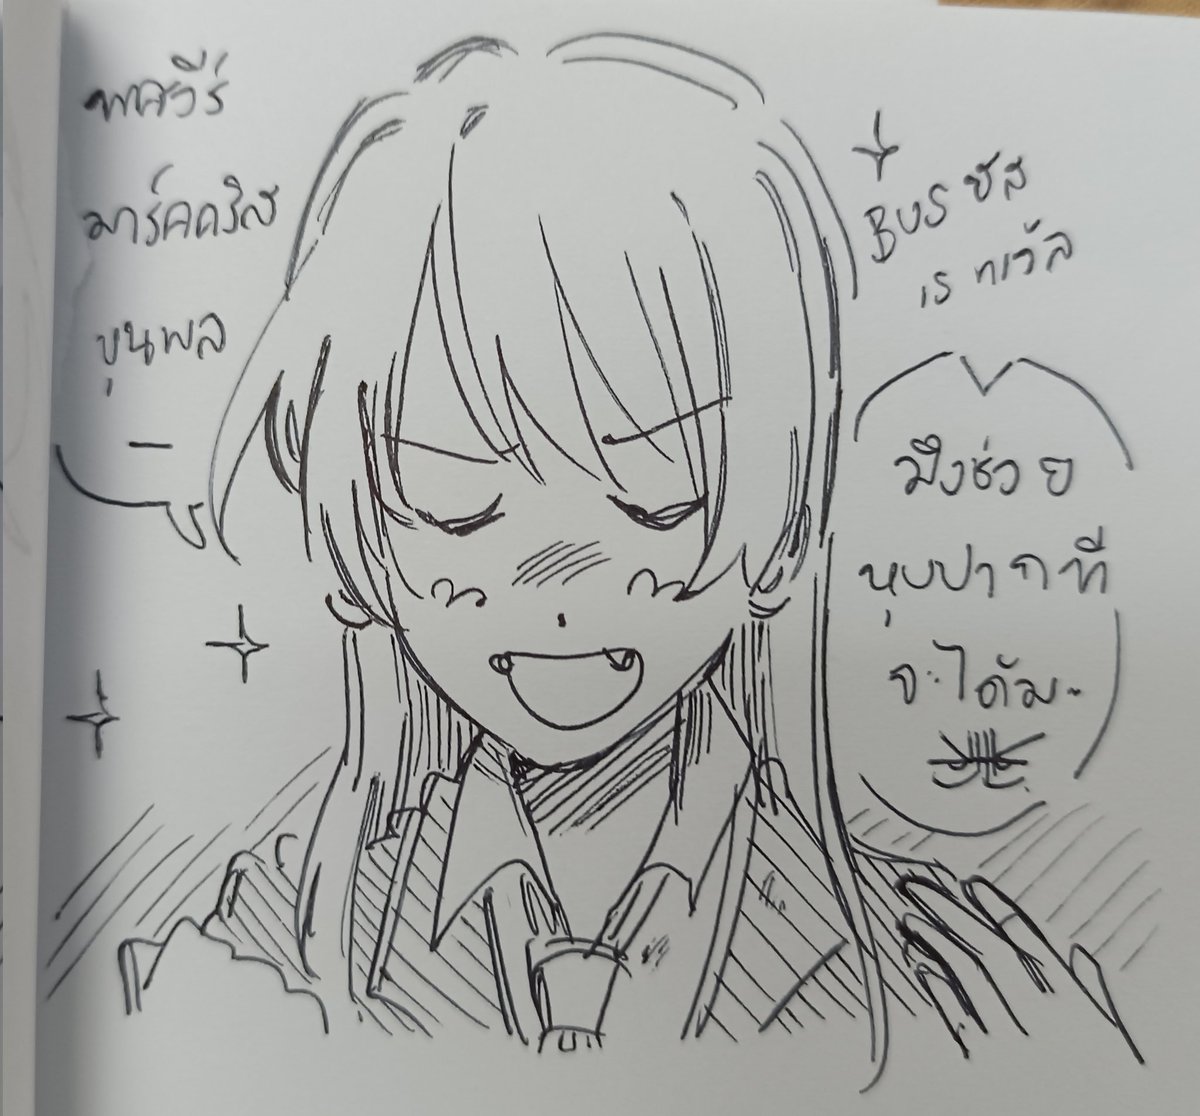 ภาสวีร์
มาร์คคริส
ขุนพล
BUS บัส
เร ทเวัล
มึงช่วย
หุบปากที
จะได้มะ